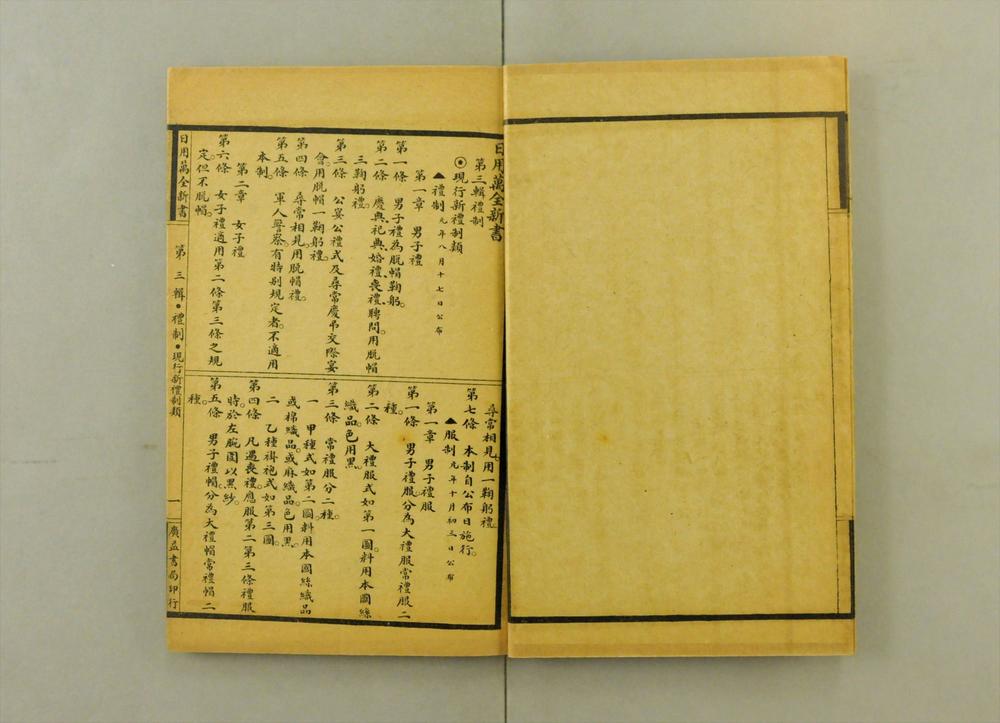 日用萬全新書
第三輯禮制
◉現行新禮制類
▲禮制 元年八月十七日公布
第一章 男子禮
第一條 男子禮為脫帽鞠躬。
第二條 慶典、祀典、婚禮、喪禮、聘問用脫帽
三鞠躬禮。
第三條 公宴公禮式及尋常慶弔交際宴
會。用脫帽一鞠躬禮。
第四條 尋常相見用脫帽禮。
第五條 軍人警察有特別規定者。不適用
本制。
第二章 女子禮
第六條 女子禮適用第二條第三條之規
定但不脫帽。
尋常相見用一鞠躬禮。
第七條 本制自公布日施行。
▲服制 元年十月初三日公布
第一章 男子禮服
第一條 男子禮服分為大禮服常禮服二
種。
第二條 大禮服式如第一圖。料用本國絲
織品。色用黑。
第三條 常禮服分二種。
一 甲種式如第二圖。料用本國絲織品
或棉織品。或麻織品。色用黑。
二 乙種褂袍式如第三圖。
第四條 凡遇喪禮。應服第二第三條禮服
時。於左腕圍以黑紗。
第五條 男子禮帽。分為大禮帽常禮帽二
種。
日用萬全新書
第三輯•禮制•現行新禮制類
一
廣益書局印行